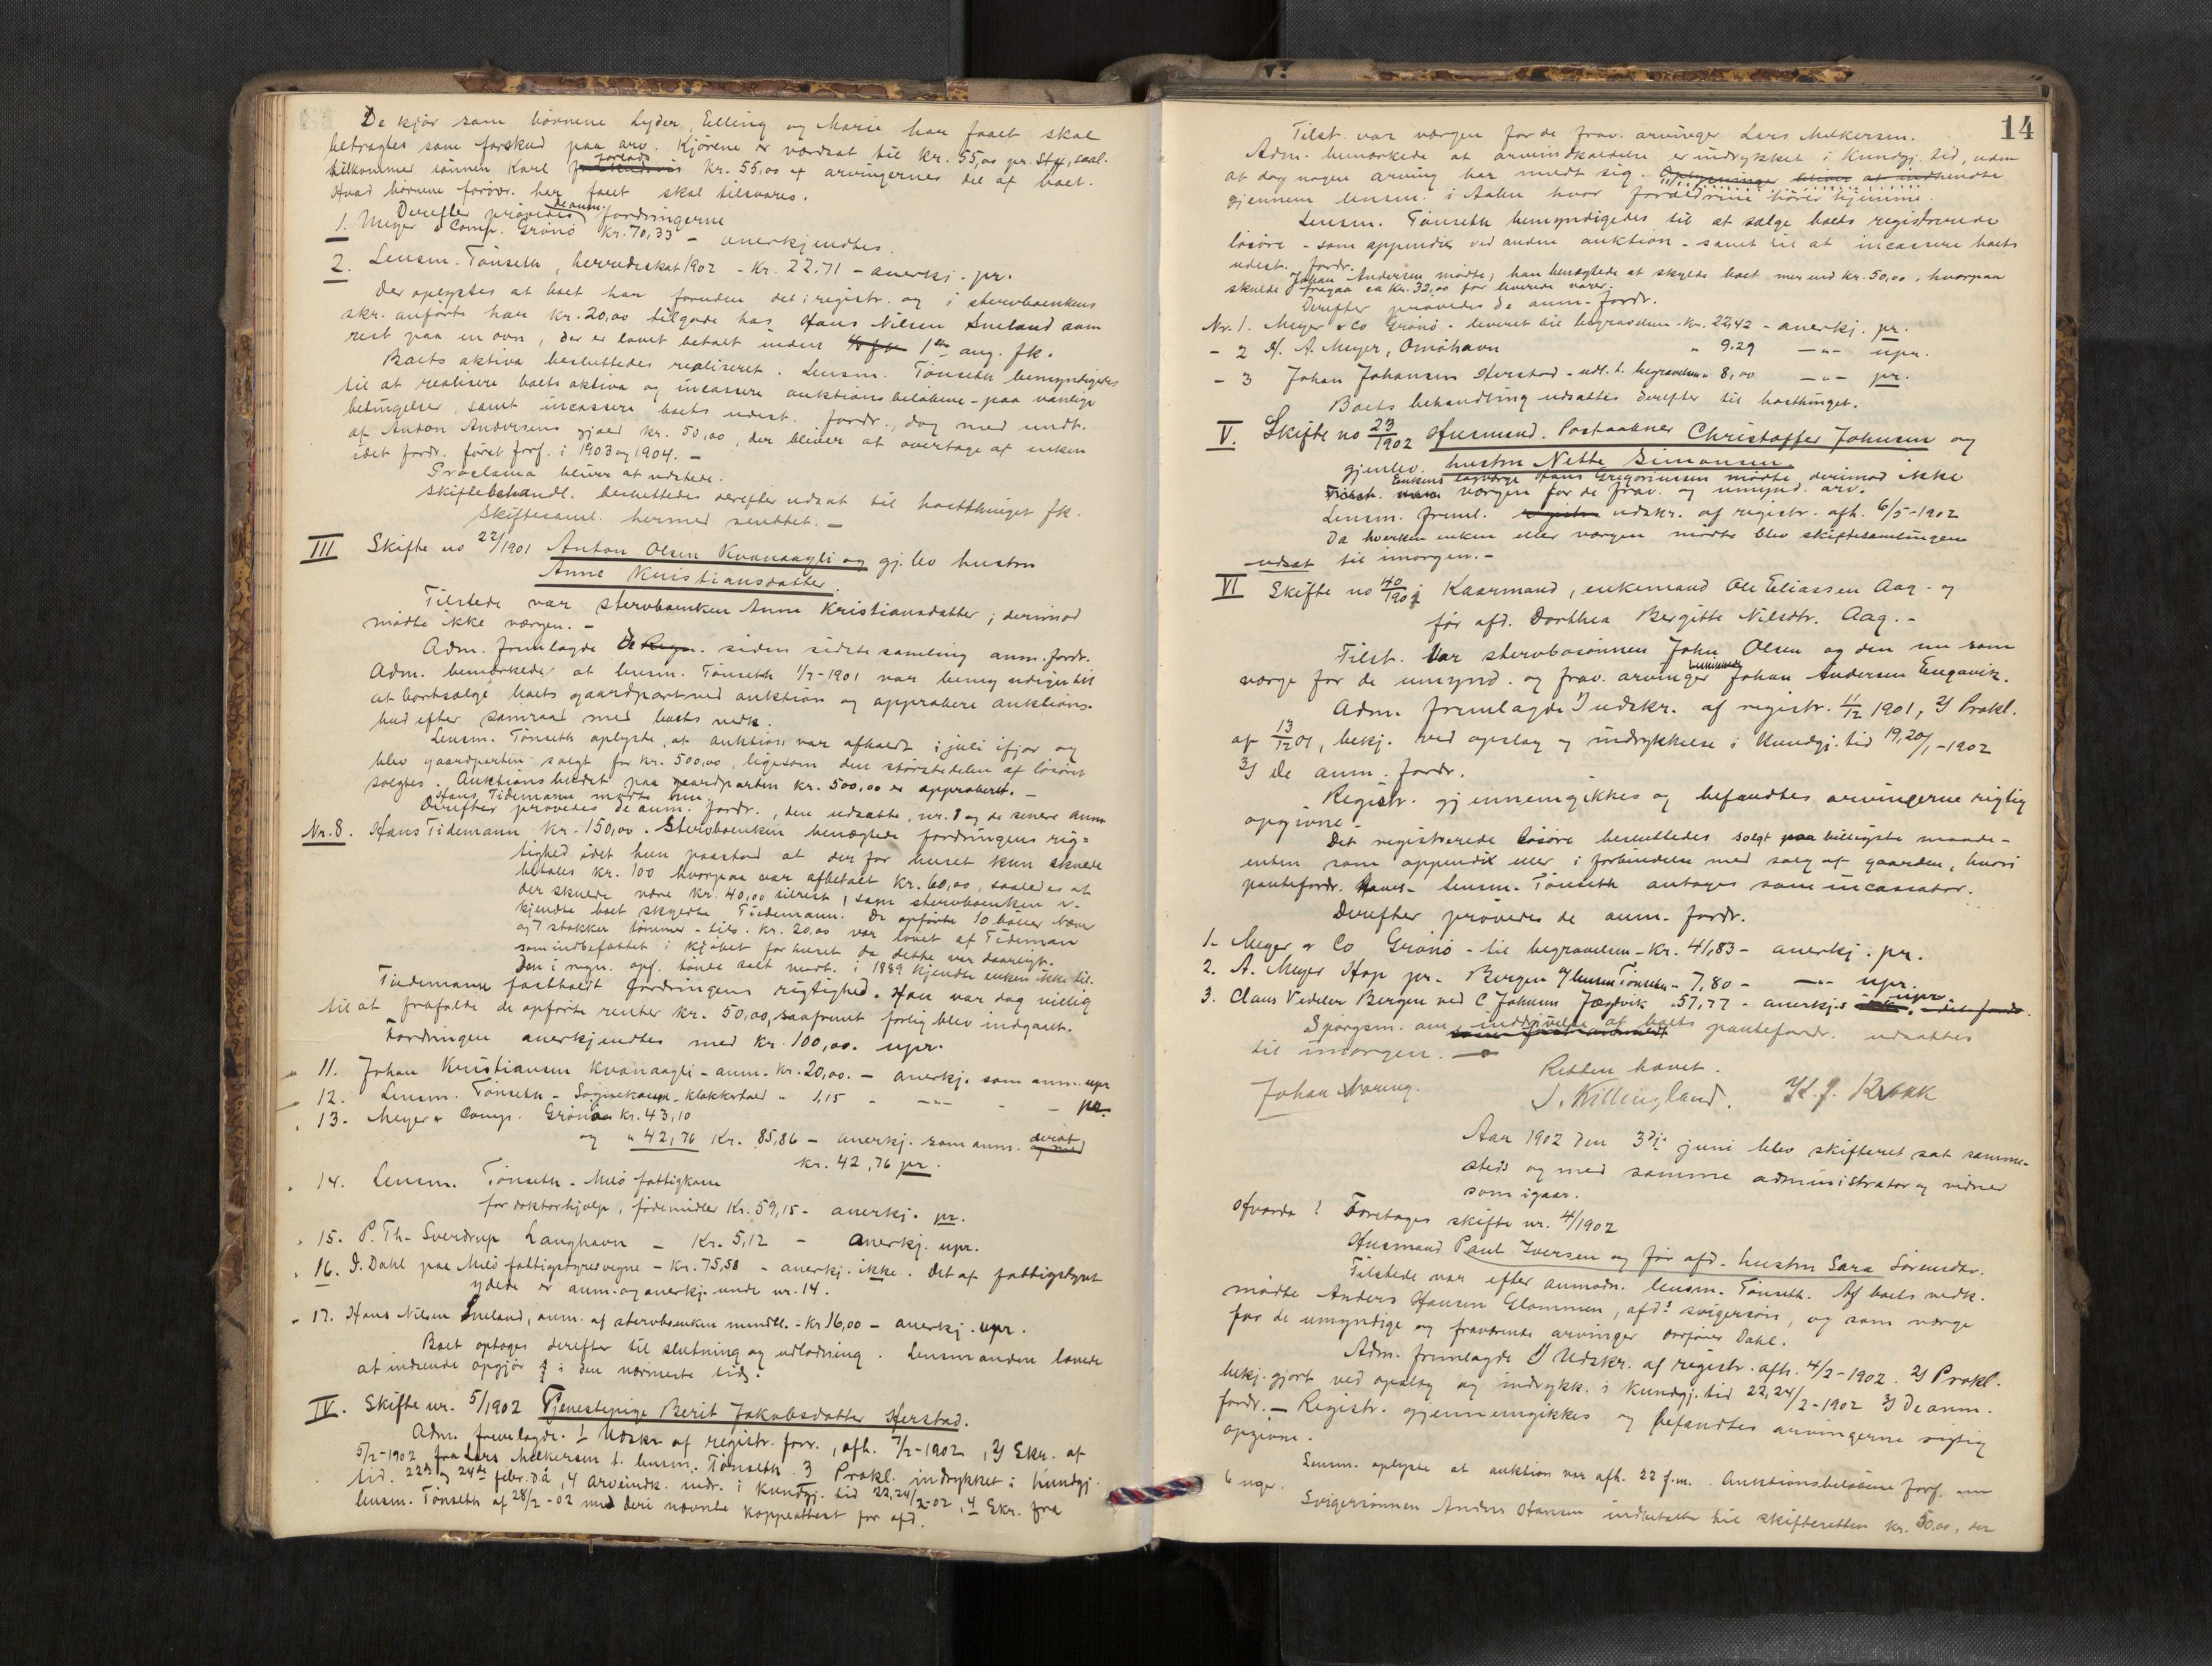 De kjør som børnene Lyder, Elling og Marie har faaet skal
betragtes som forskud paa arv. Kjørene er værdsat til kr. 55,00 pr. stk, saal.
tilkommer sønnen Karl forlods kr. 55,00 af arvingernes del af boet.
Hvad børnene forøvr. har faaet skal tilsvares.
Derefter prøvedes de anm. fordringerne
1. Meyer & Comp. Grønø kr. 70,33 - anerkjendtes.
2. Lensm. Tønseth, herredsskat 1902 - kr. 22.71 - anerkj. pr.
Der oplystes at boet har foruden det i registr. og i stervboenkens
skr. anførte har kr. 20,00 tilgode hos Hans Nilsen Sneland som
rest paa en ovn, der er lovet betalt inden 1ste aug. fk.
Boets aktiva besluttedes realiseret. Lensm. Tønseth bemyndigedes
til at realisere boets aktiva og incassere auktionsbeløbene - paa vanlige
betingelser, samt incassere boets udest. fordr., dog med undt.
af Anton Andersens gjæld kr. 50,00, der bliver at overtage af enken
idet fordr. først forf. i 1903 og 1904. -
Proclama bliver at udstede.
Skiftebehandl. besluttedes derefter udsat til høstthinget fk.
Skiftesaml. hermed sluttet. -
III Skifte no 22/1901 Anton Olsen Kvanaagli og gj. lev hustru
Anne Kristiansdatter.
Tilstede var stervboenken Anne Kristiansdatter; derimod
mødte ikke værgen. -
Adm. fremlagde de siden sidste samling anm. fordr.
Adm. bemærkede, at lensm. Tønseth 1/7-1901 var bemyndiget til
at bortsælge boets gaardpart ved auktion og approbere auktions-
bud efter samraad med boets vedk.
Lensm. Tønseth oplyste, at auktion var afholdt i juli ifjor og
blev gaardparten solgt for kr. 500,00, ligesom den størstedelen af løsøret
solgtes. Auktionsbudet paa gaardparten kr. 500,00 er approberet. -
Hans Tidemann mødte nu.
Derefter prøvedes de anm. fordr., den udsatte, nr. 8 og de senere anm
Nr. 8. Hans Tidemann kr. 150,00. Stervboenken benægtede fordringens rig=
tighed idet hun paastod at der for huset kun skulde
betales kr. 100 hvorpaa var afbetalt kr. 60,00, saaledes at
der skulde være kr. 40,00 tilrest, som stervboenken er-
kjendte boet skyldte Tidemann. De opførte 10 bøller Næver
og 7 stokker tømmer - tils. kr. 20,00 var lovet af Tideman
som indbefattet i kjøbet for huset da dette var daarligt.
Den i regn. opf. tønde salt modt. i 1889 kjendte enken ikke til.
Tidemann fastholdt fordringens rigtighed. Han var dog villig
til at frafalde de opførte renter kr. 50,00, saafremt forlig blev indgaaet.
Fordringen anerkjendtes med kr. 100,00. upr.
11. Johan Kristiansen Kvanaagli - anm. kr. 20,00. - anerkj. som anm. upr
12. Lensm. Tønseth - Sognekasse - Klokkertold - 1,15 - -"- - - pr.
13. Meyer & Comp. Grønø kr. 43,10
og " 42,76 kr. 85,86 - anerkj. som anm. deraf
kr. 42,76 pr.
14. Lensm. Tønseth - Melø fattigkasse
for doktorhjælp, fødemidler kr. 59,15 - anerkj. pr.
15. P. Th. Sverdrup Langhavn - kr. 5,12 - anerkj. upr.
16. I. Dahl paa Melø fattigstyres vegne - kr. 75,58 - anerkj. ikke. Det af fattigstyret
ydede er anm. og anerkj. unde nr. 14.
17. Hans Nilsen Sneland, anm. af stervboenken mundtl. - kr 16,00 - anerkj. upr.
Boet optages derefter til slutning og udlodning. Lensmanden lovede
at indsende opgjør i den nærmeste tid.
IV. Skifte nr. 5/1902 Tjenestepige Berit Jakobsdatter Herstad.
Adm. fremlagde. 1 Udskr af registr. forr., afh. 7/2-1902, 2) Skr. af
5/2-1902 fra Lars Melkersen t. lensm. Tønseth 3 Prokl. indrykket i kundgj.
tid. 22de og 24de febr. d å, 4 arveindk. indr. i kundgj. tid 22,24/2-02, 4 Skr. fra
lensm. Tønseth af 28/2-02 med deri nævnte koppeattest for afd.
14
Tilst. var værgen for de frav. arvinger Lars Melkersen.
Adm. bemærkede at arveindkaldelse er indrykket i Kundgj. tid, uden
at dog nogen arving har meldt sig. Oplysninger bliver at indhendte
gjennem lensm. i Aalen hvor forældrene hører hjemme.
Lensm. Tønseth bemyndigedes til at sælge boets registrerede
løsøre - som appendix ved anden auktion - samt til at incassere boets
udest. fordr.
Johan Andersen mødte; han benægtede at skylde boet mer end kr. 50,00, hvorpaa
skulde fragaa ca kr. 32,00 for leverede varer.
Derefter prøvedes de anm. fordr.
Nr. 1. Meyer & Co Grønø - leveret til begravelsen - kr. 22,42 - anerkj. pr.
- 2 H. A. Meyer, Ornøhavn " 9.29 -"- upr.
- 3 Johan Johansen Herstad - udl. t. begravelsen " 8,00 -"- pr.
Boets behandling udsattes derefter til høstthinget.
V. Skifte no 23/1902 Husmand. Postaabner Christoffer Johnsen og
gjenlev. hustru Nette Simonsen.
Enkens lagværge Hans Gregoriussen mødte, derimod ikke
værgen for de frav. og umynd. arv.
Lensm. freml. udskr. af registr. afh. 6/5-1902
Da hverken enken eller værgen mødte blev skiftesamlingen
udsat til imorgen. -
VI Skifte no 40/1901 Kaarmand, enkemand Ole Eliassen Aag - og
før afd. Dorthea Bergitte Nilsdtr. Aag. -
Tilst. var stervbosønnen John Olsen og den nu som
værge for de umynd. og frav. arvinger Johan Andersen Engavik.
Adm. fremlagde 1) udskr. af registr. 11/12 1901, 2) Prokl.
af 13/12 01, bekj. ved opslag og indrykkelse i Kundgj. tid 19,20/1-1902
3) De anm. fordr.
Registr. gjennemgikkes og befandtes arvingerne rigtig
opgivne.
Det registrerede løsøre besluttedes solgt paa billigste maade -
enten som appendix eller i forbindelse med salg af gaarden, hvori
pantefordr. haves - lensm. Tønseth antages som incassator.
Derefter prøvedes de anm. fordr.
1. Meyer & Co Grønø - til begravelsen - kr. 41,83 - anerkj. pr.
2. A. Meyer Hop pr. Bergen v/lensm Tønseth - 7,80 - -"- upr.
3. Claus Vedeler Bergen ved C Johnsen Jægtvik - 57,77 - anerkj. upr
Spørgsm. om inddrivelse af boets pantefordr. udsattes
til imorgen. -
Retten hævet.
Johan Maring. J. Killingland. K. J. Kvakk
Aar 1902 den 3dje juni blev skifteret sat samme-
steds og med samme administrator og vidner
som igaar.
Hvorda! Foretages skifte nr. 4/1902
Husmand Paul Iversen og før afd. hustru Sara Sørensdtr.
Tilstede var efter anmodn. lensm. Tønseth. Af boets vedk.
mødte Anders Hansen Glommen, afd.s svigersøn, og som værge
for de umyndige og fraværende arvinger Dahl.
Adm. fremlagde 1) Udskr. af registr. afh. 4/2-1902. 2) Prokl.
bekj. gjort ved opslag og indrykk. i kundgj. tid 22,24/2-1902 3) De anm.
fordr. - Registr. gjennemgikkes og befandtes arvingerne rigtig
opgivne.
Lensm. oplyste at auktion var afh. 22 f.m. Auktionsbeløbene forf. om
6 uger.
Svigersønnen Anders Hansen indbetalte til skifteretten kr. 50,00, der